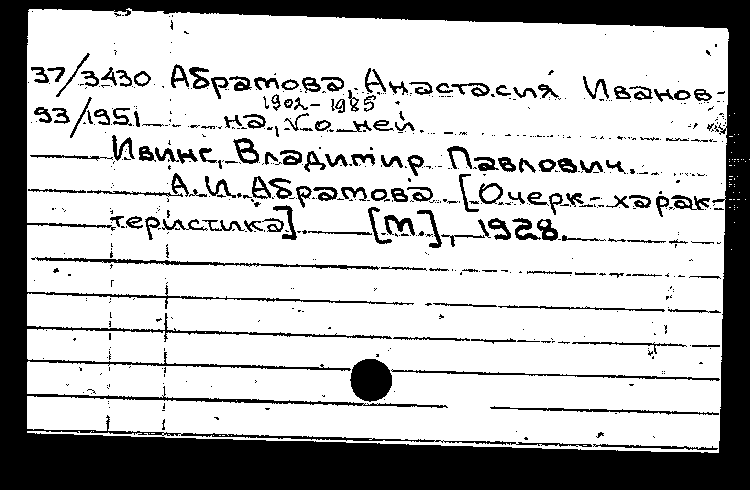 37/3430 Абрамова, Анастасия Иванов-
1902-1985
93/1951 на, о ней.
Ивинг, Владимир Павлович.
А. И. Абрамова. [Очерк-харак-
теристика]. [М.], 1928.